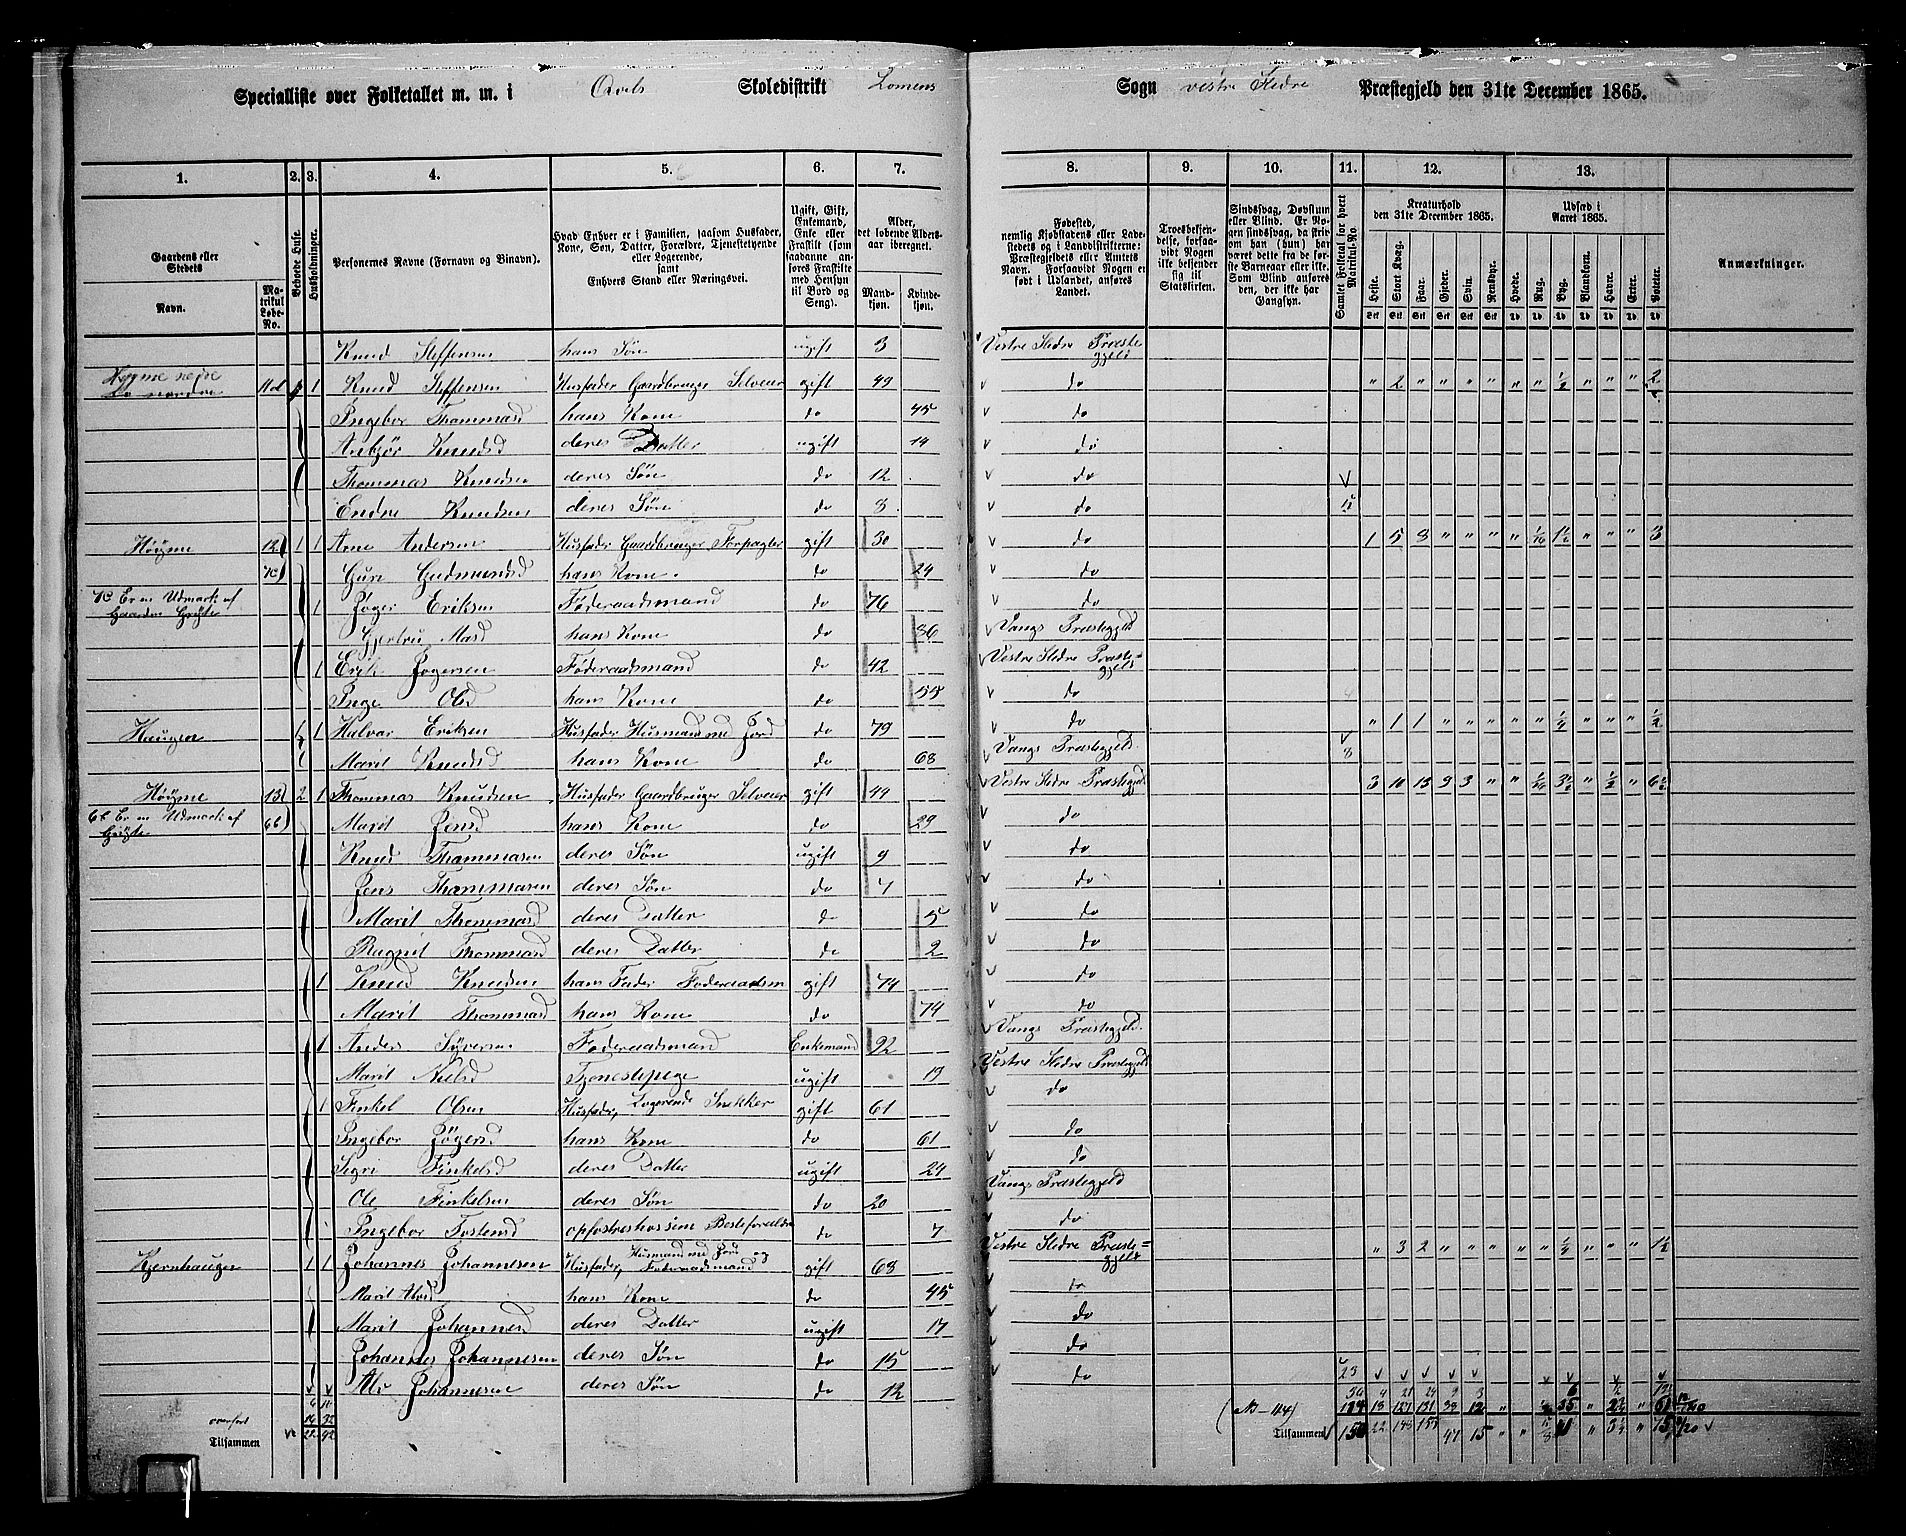 Specialliste over Folketallet m. m. i Qvels Skoledistrikt Lomens Sogn vestre Slidre Præstegjeld den 31te December 1865.
1. 2. 3. 4. 5. 6. 7. 8. 9. 10. 11. 12. 13.
Gaardens eller Stedets
Navn.
Matrikul Løbe-No.
Beboede Huse.
Husholdninger.
Personernes Navne (Fornavn og Binavn).
Hvad Enhver er i Familien, saasom Husfader, Kone, Søn, Datter, Forældre, Tjenestetyende eller Logerende, samt
Enhvers Stand eller Næringsvei.
Ugift, Gift, Enkemand, Enke eller Fraskilt (som saadanne anføres Fraskilte med Hensyn til Bord og Seng).
Alder, det løbende Aldersaar iberegnet.
Mandkjøn. Kvindekjøn.
Fødested, nemlig Kjøbstadens eller Ladestedets og i Landdistrikterne: Præstegjeldets eller Amtets Navn. Forsaavidt Nogen er født i Udlandet, anføres Landet.
Troesbekjendelse, forsaavidt Nogen ikke bekjender sig til Statskirken.
Sindssvag, Døvstum eller Blind. Er Nogen sindssvag, da skrives om han (hun) har været dette fra de første Barneaar eller ikke. Som Blind anføres den, der ikke har Gangsyn.
Samlet Folketal for hvert Matrikul-No
Kreaturhold den 31te December 1865.
Heste. Stort Kvæg. Faar. Gjeder. Svin. Rensdyr.
Udsæd i Aaret 1865.
Hvede. Rug. Byg. Blandkorn. Havre. Erter. Poteter.
Anmærkninger.
Knud Steffensen hans Søn ugift 3 Vestre Slidre Præstegjeld
Høyme nejre nordre 1 Knud Steffensen Husfader Gaardbruger Selveier gift 49 do " 2 " " " " " " ½ " " " 2
Ingebor Thommasd hans Kone do 45 do
Anbjør Knudsd deres Datter ugift 14 do
Thommas Knudsen deres Søn do 12 do
Endre Knudsen deres Søn do 8 do
Høyme 12 1 1 Arne Andersen Husfader Gaardbruger Forpagter gift 30 do 1 5 8 " " " " 1/16 1½ " " " 3
7c Guri Gudmundsd hans Kone. do 24 do
7c Er en Udmark af Gaarden Gryte 1 Jøger Eriksen Føderaadsmand do 76 do
Gjertru Masd hans Kone do 36 Vangs Præstegjeld
1 Erik Jøgersen Føderaadsmand do 42 Vestre Slidre Præstegjeld
Inge Olsd hans Kone do 55 do
Haugen 1 Halvar Eriksen Husfader Husmand med Jord do 79 do " 1 1 " " " " " ¼ " " " ½
Marit Knudsd hans Kone do 68 Vangs Præstegjeld. 8
Høyme 13 2 1 Thommas Knudsen Husfader Gaardbruger Selveier gift 44 Vestre Slidre Præstegjeld 3 10 13 9 3 " " 1/16 3½ " ½ " 6½
6b Er en Udmark af Gryte 6b Marit Jensd hans Kone do 29 do
Knud Thammasen deres Søn ugift 9 do
Jens Thammasen deres Søn do 7 do
Marit Thommasd deres Datter do 5 do
Ragnil Thommasd deres Datter do 2 do
1 Knud Knudsen hans Fader Foderaadsm gift 74 do
Marit Thommasd hans Kone do 74 do
1 Anders Syversen Føderaadsmand Enkemand 92 Vangs Præstegjeld.
Marit Nielsd Tjenestepege ugift 19 Vestre Slidre Præstegjeld
1 Finkel Olsen Husfader, Logerende Snekker gift 61 do
Ingebor Jøgersd hans Kone do 61 do
Segri Finkelsd deres Datter ugift 24 do
Ole Finkelsen deres Søn do 20 Vangs Præstegjeld
Ingebor Tostensd opfostres hos sine Besteforældre do 7 do
Kjernhaugen 1 1 Johannes Johannesen Husfader, Husmand med Jord og Føderaadsmand gift 68 Vestre Slidre Præstegjeld " 3 2 " " " " " ¼ " " " 1½
Marit Alvsd hans Kone do 45 do
Marit Johannesd deres Datter ugift 17 do
Johannes Johannesen deres Søn do 15 do
Alv Johannesen deres Søn do 12 do 23
overført
Tilsammen
Tilsammen